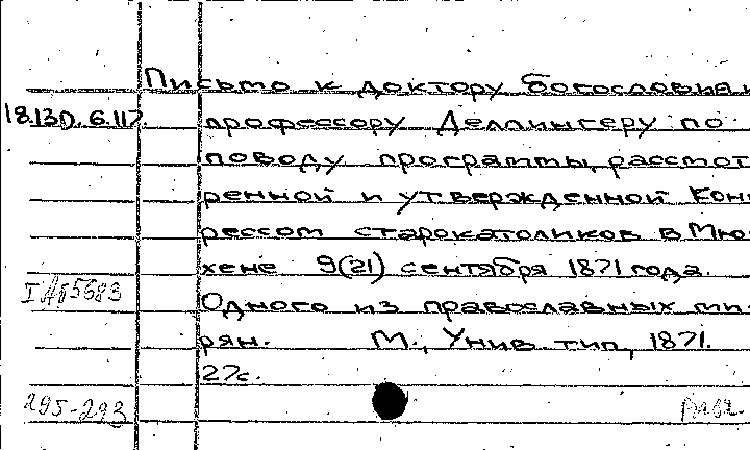 Письмо к доктору богословия и
18.130.6.112. профессору Деллингеру по
поводу программы, рассмот
ренной и утвержденной Конг
рессом старокатоликов в Мюн
хене 9(21) сентября 1871 года.
Одного из православных ми-
рян. М., Унив. тип., 1871.
27с.
295-293